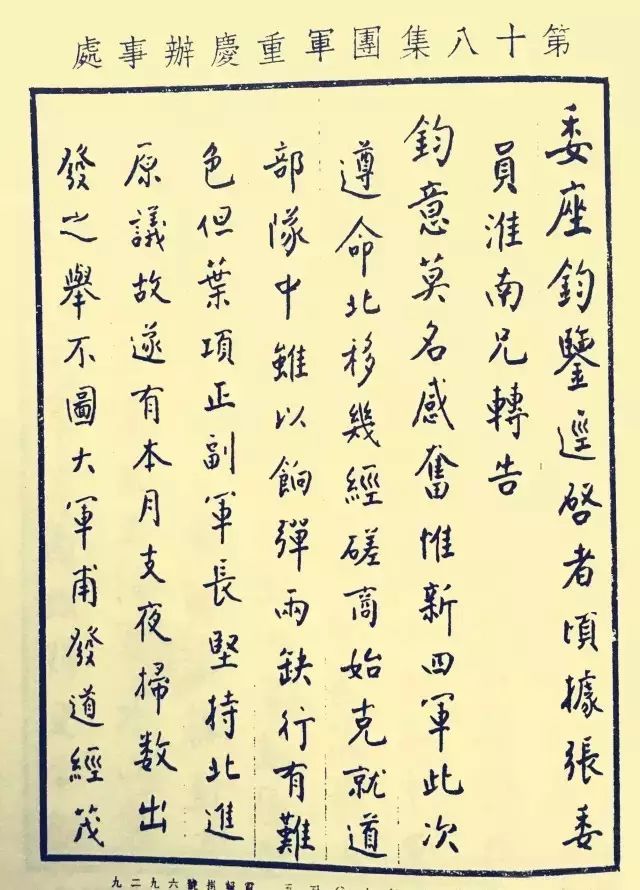 第十八集團軍重慶辦事處
委座鈞鑒逕啓者頃據張委
員淮南兄轉告
鈞意莫名感奮惟新四軍此次
遵命北移幾經磋商始克就道
部隊中雖以餉彈兩缺行有難
色但葉項正副軍長堅持北進
原議故遂有本月支夜掃数出
發之舉不圖大軍甫發道經茂
掛號六九二九